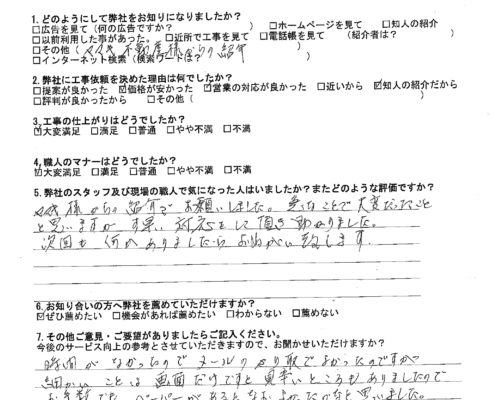 1. どのようにして弊社をお知りになりましたか?
□広告を見て (何の広告ですか? ) □ホームページを見て □知人の紹介
□以前利用した事があった。 □近所で工事を見て □電話帳を見て (紹介者は? )
□その他 ( 不動産様からの紹介
□インターネット検索 (検索ワードは? )
2. 弊社に工事依頼を決めた理由は何でしたか?
□提案が良かった ☑価格が安かった ☑営業の対応が良かった □近いから ☑知人の紹介だから
□評判が良かったから □その他 ( )
3. 工事の仕上がりはどうでしたか?
☑大変満足 □満足 □普通 □やや不満 □不満
4. 職人のマナーはどうでしたか?
☑大変満足 □満足 □普通 □やや不満 □不満
5. 弊社のスタッフ及び現場の職人で気になった人はいましたか?またどのような評価ですか?
様からの紹介でお願いしました。急なことで大変だったこと
と思いますが す早い対応をして頂き助かりました。
次回も何かありましたらお願い致します。
6. お知り合いの方へ弊社を薦めていただけますか?
☑ぜひ薦めたい □機会があれば薦めたい □わからない □薦めない
7. その他ご意見・ご要望がありましたらご記入ください。
今後のサービス向上の参考とさせていただきますので、お聞かせいただけますか?
時間がなかったのでメールのやり取でよかったのですが
細かいことは画面だけですと見辛いところもありましたので
お手数でも ペーパーがあるとなおよかったかなと思いました。